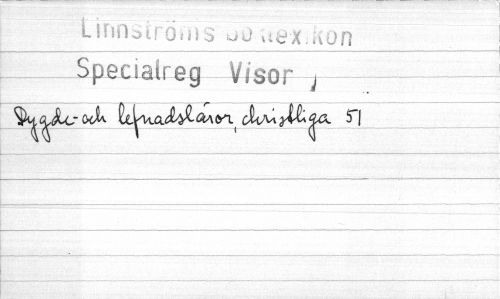 Linnströms boklexikon
Specialreg Visor
Dygde- och lefnadsläror, christliga 51